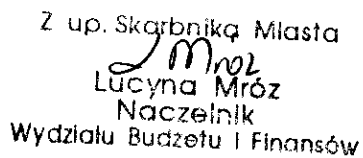 Z up. Skarbnika Miasta
Mroz
Lucyna Mróz
Naczelnik
Wydziału Budżetu i Finansów